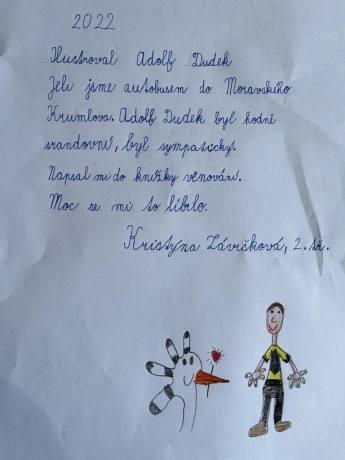 2022
Ilustroval Adolf Dudek
Jeli jsme autobusem do Moravského
Krumlova. Adolf Dudek byl hodně
srandovní, byl sympatický.
Napsal mi do knížky věnování.
Moc se mi to líbilo.
Kristýna Závišková, 2. tř.